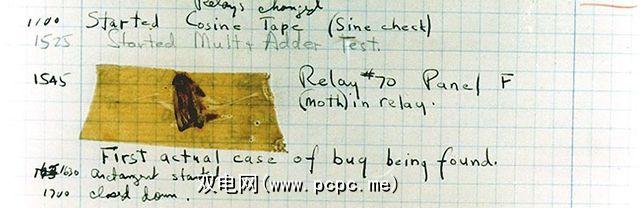 Relays changed
1100 Started Cosine Tape (Sine check)
1525 Started Mult+Adder Test.
1545 Relay #70 Panel F
(moth) in relay.
First actual case of bug being found.
1630 arctangent started.
1700 closed down.
双电网(www.pcpc.me)